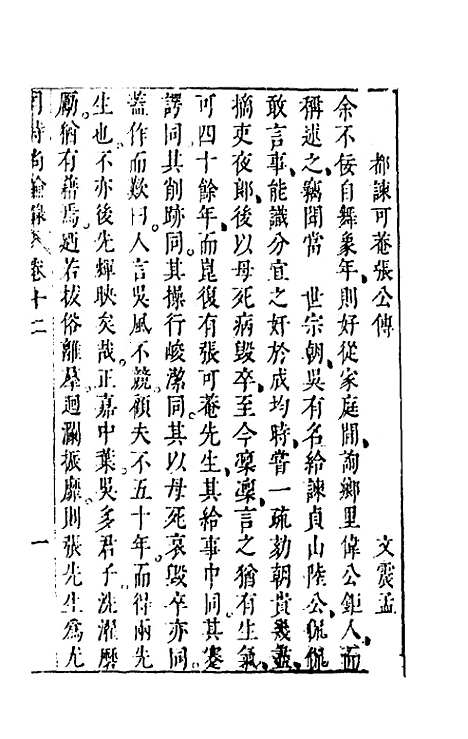 都諫可菴張公傳　文震孟
余不佞自舞象年則好從家庭間詢鄉里偉公鉅人而
稱述之竊聞當　世宗朝吳有名給諫貞山陸公侃侃
敢言事能識分宜之奸於成均時嘗一疏劾朝貴幾盡
摘吏夜郎後以母死病毀卒至今凜凜言之猶有生氣
可四十餘年而崑復有張可菴先生其給事中同其蹇
諤同其削跡同其操行峻潔同其以母死哀毀卒亦同
蓋作而歎曰人言吳風不競顧夫不五十年而得兩先
生也不亦後先輝映矣哉正嘉中葉吳多君子洗濯磨
勵猶有藉焉迺若拔俗離羣迴瀾振靡則張先生爲尤
尚論錄 卷十二　一